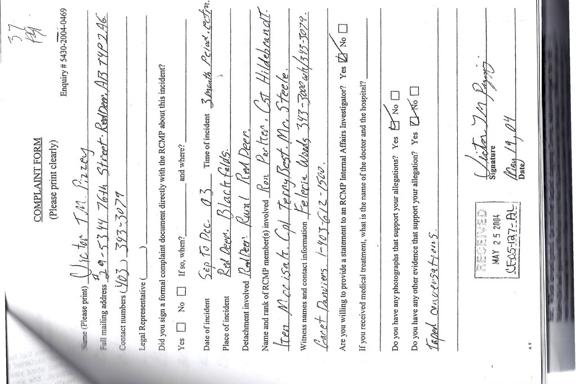 37 Pg
Enquiry # 5430-2004-0469
COMPLAINT FORM
(Please print clearly)
Name (Please print) Victor J.M. Pizzey
Full mailing address #29-5344 76th Street. Red Deer, AB T4P 2A6
Contact numbers (403) 343-3079
Legal Representative ( )
Did you sign a formal complaint document directly with the RCMP about this incident?
Yes No If so, when? and where?
Date of incident Sep to Dec 03 Time of incident 3 month Period
Place of incident Red Deer, Blackfalds.
Detachment involved Red Deer Rural Red Deer.
Name and rank of RCMP member(s) involved Ron Parker, Cst Hildebrandt.
Ken Morrison. Cpl Terry Best. Mr. Steele.
Witness names and contact information Woods 343-3000 wk/343-3079.
Garet 1-403-612-1500.
Are you willing to provide a statement to an RCMP Internal Affairs Investigator? Yes No
If you received medical treatment, what is the name of the doctor and the hospital?
Do you have any photographs that support your allegations? Yes No
Do you have any other evidence that support your allegation? Yes No
Taped conversations
Signature
May 19, 04
Date
RECEIVED
MAY 25 2004